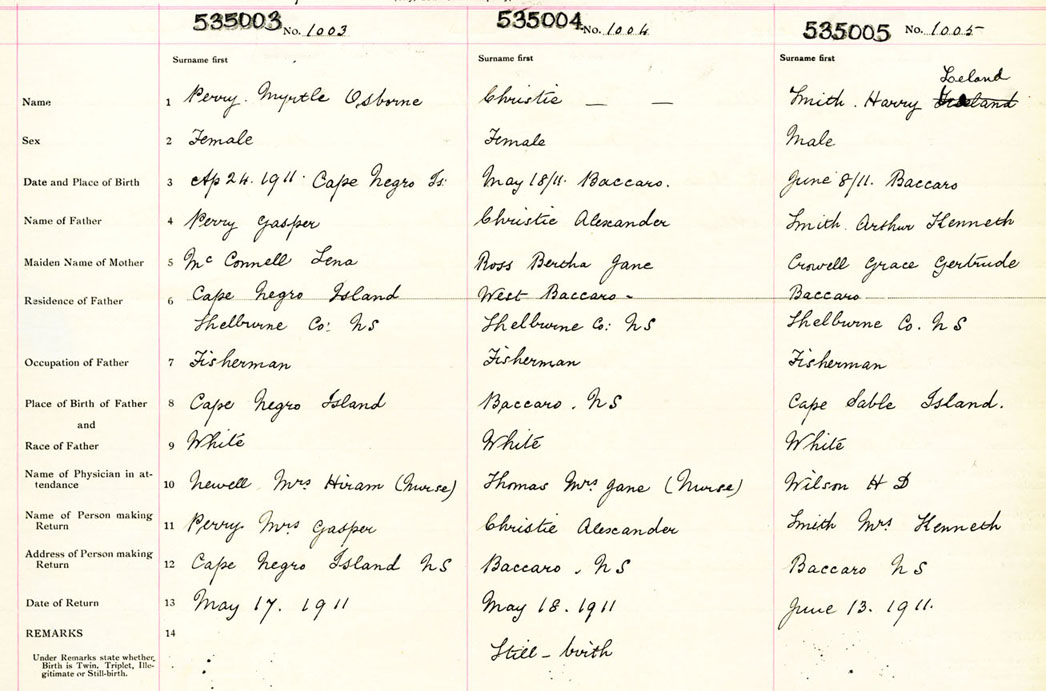 535003 No. 1003 535004 No. 1004 535005 No. 1005
Surname first Surname first Surname first
Leland
Name 1 Perry. Myrtle Osborne Christie — — Smith. Harry
Sex 2 Female Female Male
Date and Place of Birth 3 Ap 24. 1911 Cape Negro Is: May 18/11. Baccaro. June 8/11. Baccaro
Name of Father 4 Perry Gasper Christie Alexander Smith. Arthur Kenneth
Maiden Name of Mother 5 Mc Connell Lena Ross Bertha Jane Crowell Grace Gertrude
Residence of Father 6 Cape Negro Island West Baccaro - Baccaro
Shelburne Co: NS Shelburne Co: NS Shelburne Co. NS
Occupation of Father 7 Fisherman Fisherman Fisherman
Place of Birth of Father 8 Cape Negro Island Baccaro. NS Cape Sable Island.
and
Race of Father 9 White White White
Name of Physician in at-
tendance 10 Newell Mrs Hiram (Nurse) Thomas Mrs Jane (Nurse) Wilson H D
Name of Person making
Return 11 Perry Mrs Gasper Christie Alexander Smith Mrs Kenneth
Address of Person making
Return 12 Cape Negro Island NS Baccaro. NS Baccaro NS
Date of Return 13 May 17. 1911 May 18. 1911 June 13. 1911.
REMARKS 14
Still-birth
Under Remarks state whether
Birth is Twin, Triplet, Ille-
gitimate or Still-birth.